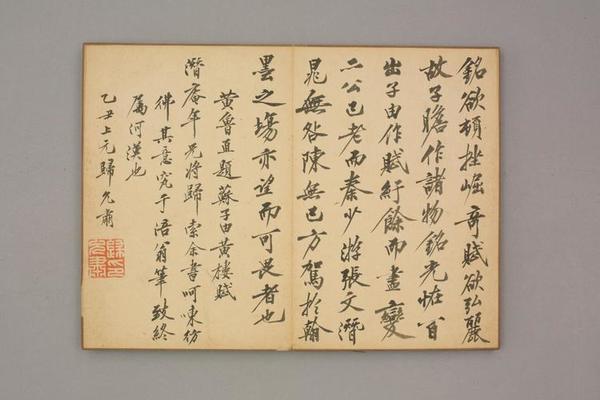 銘欲頓挫崛奇賦欲弘麗
故子瞻作諸物銘光恠百
出子由作賦紆餘而盡變
二公已老而秦少游張文潛
晁無咎陳無已方駕於翰
墨之場亦望而可畏者也
黃魯直題蘇子由黃樓賦
潛庵年兄將歸索余書呵凍彷
彿其意究于涪翁筆致終
屬河漢也
乙丑上元歸允肅